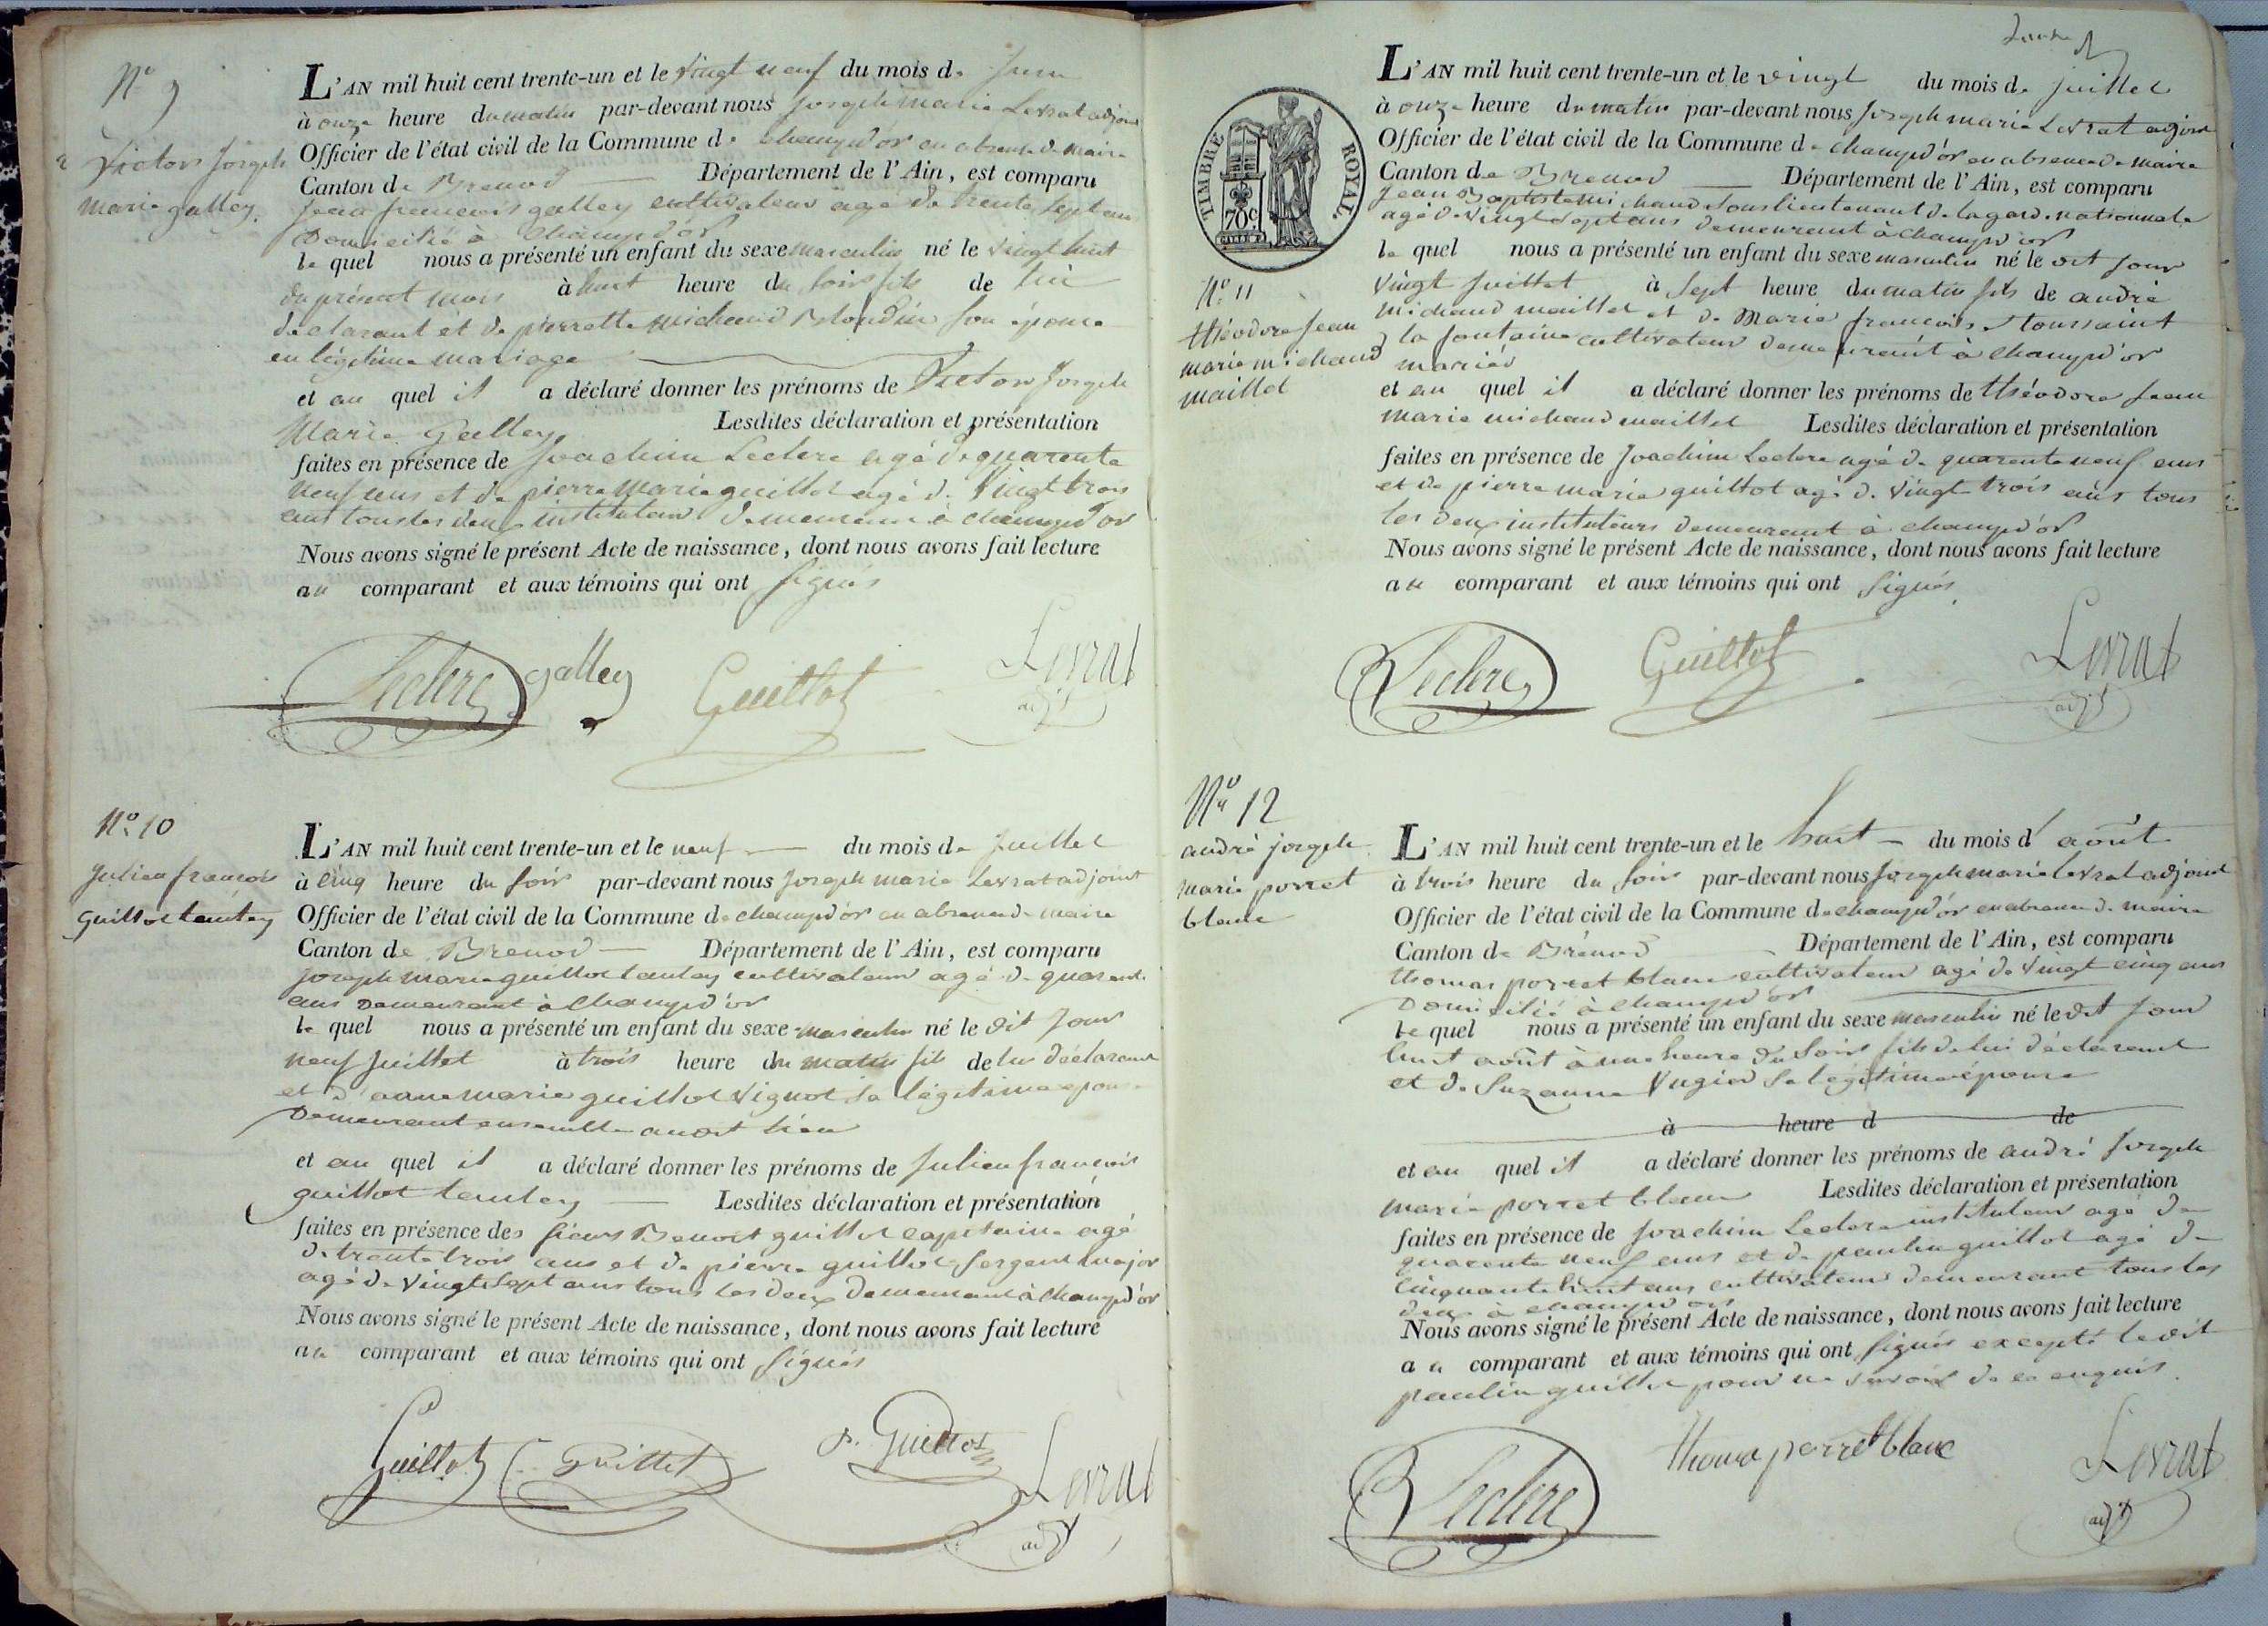 N° 9
Victor Joseph
marie galley.
L'AN mil huit cent trente-un et le vingt neuf du mois de Juin
à onze heure du matin par-devant nous Joseph marie Levrat adjoint
Officier de l'état civil de la Commune de champd'or en absence de maire
Canton de Brenod Département de l'Ain, est comparu
Jean francois galley cultivateur agé de trente sept ans
Domicilié à Champd'or
le quel nous a présenté un enfant du sexe masculin né le vingt huit
du présent mois à huit heure du soir fils de lui
déclarant et de pierrette michaud Blondin son épouse
en légitime mariage
et au quel il a déclaré donner les prénoms de Victor Joseph
Marie Galley. Lesdites déclaration et présentation
faites en présence de Joachim Leclerc agé de quarente
neuf ans et de pierre marie guillot agé de Vingt trois
ans tous les deux instituteur demeurant à champd'or
Nous avons signé le présent Acte de naissance, dont nous avons fait lecture
au comparant et aux témoins qui ont signés
Leclerc galley Guillot Levrat
adjt
N° 10
Julien francois
guillot tantey
L'AN mil huit cent trente-un et le neuf du mois de Juillet
à cinq heure du soir par-devant nous Joseph marie Levrat adjoint
Officier de l'état civil de la Commune de champd'or en absence de maire
Canton de Brenod Département de l'Ain, est comparu
Joseph marie guillot tantey cultivateur agé de quarente
ans Demeurant à Champd'or
le quel nous a présenté un enfant du sexe masculin né le dit Jour
neuf Juillet à trois heure du matin fils de lui déclarant
et d'anne marie guillot Vignot sa légitime epouse
Demeurant ensemble audit lieu
et au quel il a déclaré donner les prénoms de Julien francois
guillot tantey Lesdites déclaration et présentation
faites en présence des sieurs Benoit guillot capitaine agé
de trente trois ans et de pierre guillot sergent major
agé de Vingt Sept ans tous les deux demeurant à champd'or
Nous avons signé le présent Acte de naissance, dont nous avons fait lecture
au comparant et aux témoins qui ont signés
Guillot Guillot P. Guillot Levrat
adjt
TIMBRE ROYAL
70c
N° 11
théodore Jean
marie michaud
maillet
L'AN mil huit cent trente-un et le vingt du mois de Juillet
à onze heure du matin par-devant nous Joseph marie Levrat adjoint
Officier de l'état civil de la Commune de champd'or en absence de maire
Canton de Brenod Département de l'Ain, est comparu
Jean Baptiste michaud Souslieutenant de la garde nationnale
agé de vingt sept ans demeurant à champd'or
le quel nous a présenté un enfant du sexe masculin né le dit Jour
Vingt Juillet à Sept heure du matin fils de andré
michaud maillet et de Marie francoise toussaint
la fontaine cultivateur demeurant à champd'or
mariés
et au quel il a déclaré donner les prénoms de théodore Jean
marie michaud maillet Lesdites déclaration et présentation
faites en présence de Joachim Leclerc agé de quarente neuf ans
et de pierre marie guillot agé de Vingt trois ans tous
les deux instituteurs demeurant à champd'or
Nous avons signé le présent Acte de naissance, dont nous avons fait lecture
au comparant et aux témoins qui ont signés
Leclerc Guillot Levrat
adjt
N° 12
andré joseph
marie porret
blanc
L'AN mil huit cent trente-un et le huit du mois d'août
à trois heure du soir par-devant nous Joseph marie Levrat adjoint
Officier de l'état civil de la Commune de champd'or en absence de maire
Canton de Brénod Département de l'Ain, est comparu
thomas porret blanc cultivateur agé de vingt cinq ans
Domicilié à champd'or
le quel nous a présenté un enfant du sexe masculin né le dit Jour
huit août à une heure du soir fils de lui déclarant
et de Suzanne Vugier sa légitime épouse
à heure d de
et au quel il a déclaré donner les prénoms de andré Joseph
marie porret blanc Lesdites déclaration et présentation
faites en présence de Joachim Leclerc instituteur agé de
quarente neuf ans et de paulin guillot agé de
Cinquante huit ans cultivateur demeurant tous les
deux à champd'or
Nous avons signé le présent Acte de naissance, dont nous avons fait lecture
au comparant et aux témoins qui ont signés excepté le dit
paulin guillot pour ne savoir de ce enquis.
Leclerc thomas porret blanc Levrat
adjt